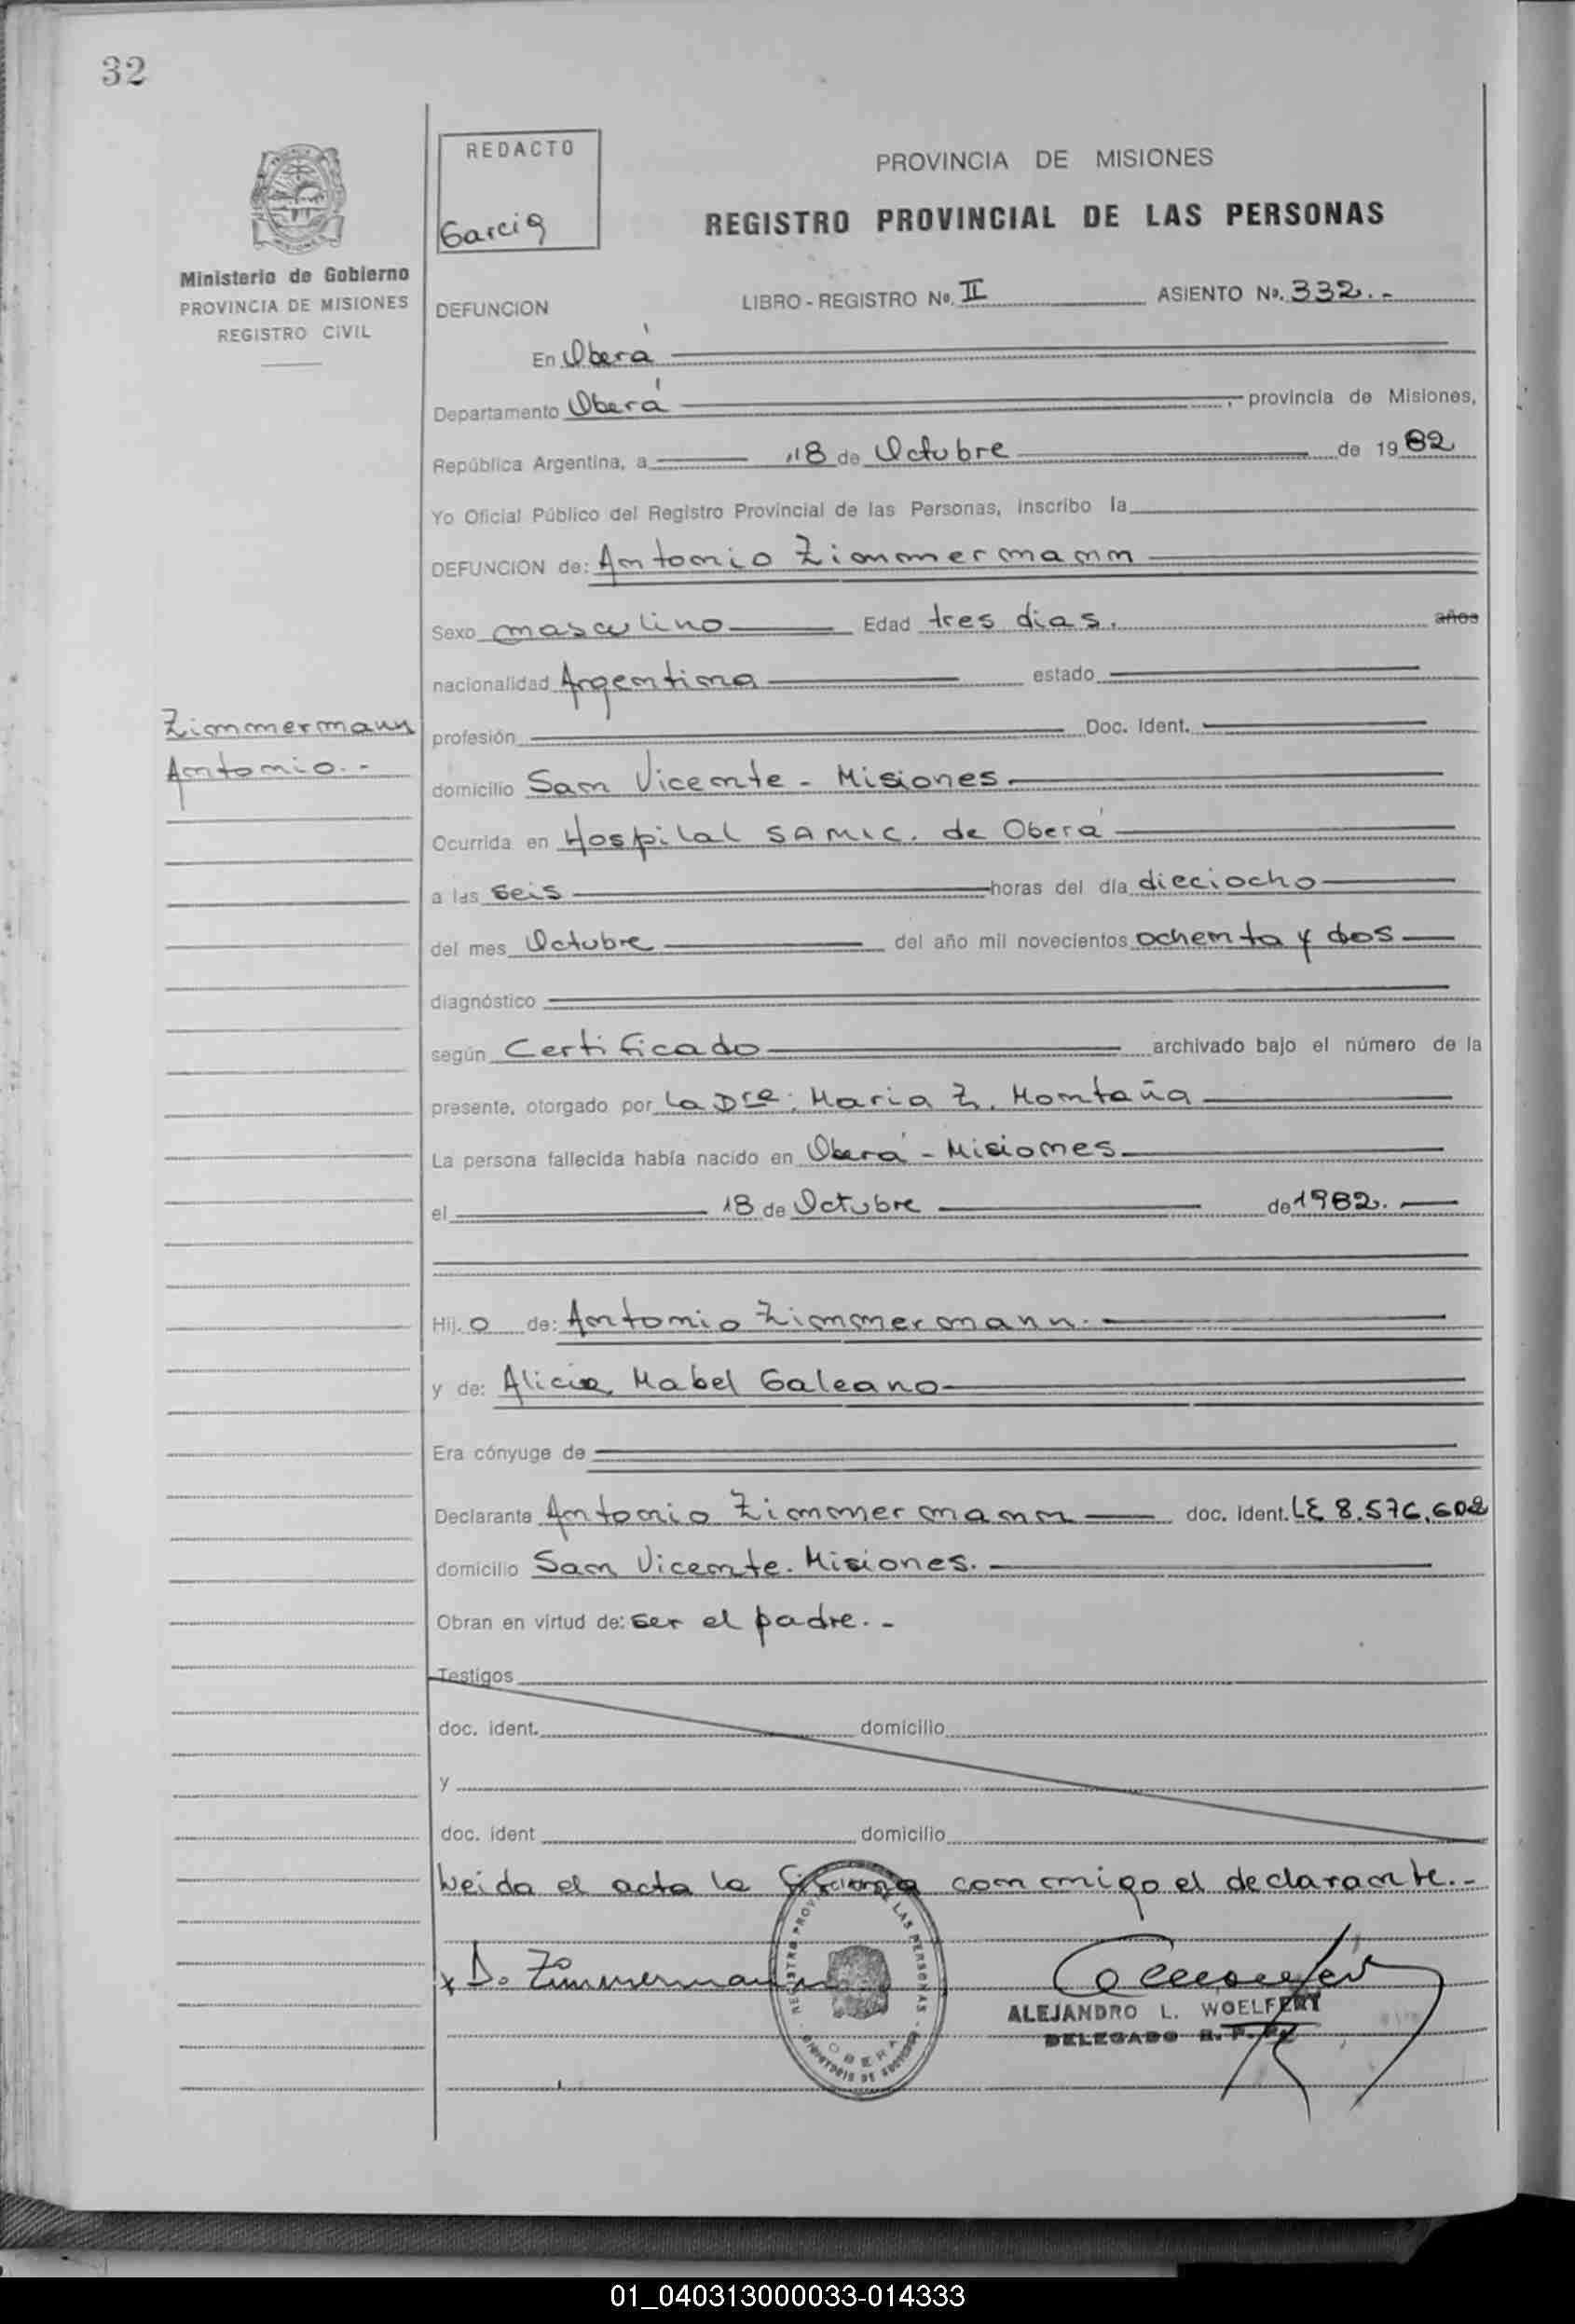 32
REDACTO
Garcia
PROVINCIA DE MISIONES
REGISTRO PROVINCIAL DE LAS PERSONAS
Ministerio de Gobierno
PROVINCIA DE MISIONES
REGISTRO CIVIL
DEFUNCION LIBRO - REGISTRO No. II ASIENTO No. 332.-
En Oberá
Departamento Oberá, provincia de Misiones,
República Argentina, a 18 de Octubre de 1982
Yo Oficial Público del Registro Provincial de las Personas, inscribo la
DEFUNCION de: Antonio Zimmermann
Sexo masculino Edad tres dias. años
nacionalidad Argentina estado
Zimmermann
Antonio.-
profesión Doc. Ident.
domicilio San Vicente - Misiones
Ocurrida en Hospital SAMIC. de Oberá
a las seis horas del día dieciocho
del mes Octubre del año mil novecientos ochenta y dos
diagnóstico
según Certificado archivado bajo el número de la
presente, otorgado por la Dra. Maria Z. Montaña
La persona fallecida había nacido en Oberá - Misiones
el 18 de Octubre de 1982.
Hij.o de: Antonio Zimmermann.
y de: Alicia Mabel Galeano
Era cónyuge de
Declarante Antonio Zimmermann doc. ident. LE 8.576.602
domicilio San Vicente. Misiones.
Obran en virtud de: ser el padre.-
Testigos
doc. ident. domicilio
y
doc. ident domicilio
Leida el acta la conmigo el declarante.-
x Zimmermann
REGISTRO PROVINCIAL DE LAS PERSONAS
OBERA
ALEJANDRO L. WOELFERT
DELEGADO R. P. P.
01_040313000033-014333